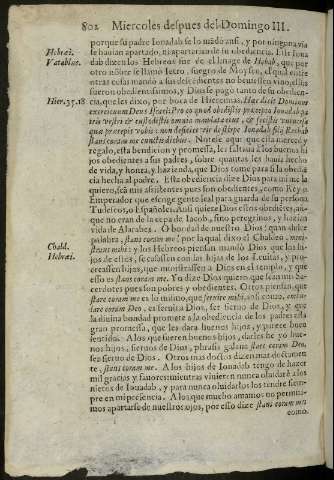 802 Miercoles despues del Domingo III.
porque su padre Ionadab se lo mãdò assi, y por ninguna via
Hebræi. se hauian apartado, ni apartarian de su obediencia. Este Iona
Vatablus. dab dizen los Hebreos fue de el linage de Hobab, que por
otro nõbre se llamò Ietro, suegro de Moysen, el qual entre
otras cosas mandò a sus descendientes no beuiessen vino, ellos
fueron obedientissimos, y Dios le pagò tanto su obedien-
Hier. 35. 18 cia, que les dixo, por boca de Hieremias. Hæc dicit Dominus
exercituum Deus Israel: Pro eo quod obedistis præcepto Ionadab pa
tris vestri & custodistis omnia mandata eius, & fecistis vniuersa
quæ præcepit vobis: non deficiet vir de stirpe Ionadab filij Rechab
stans coram me cunctis diebus. Notese aqui que esta merced y
regalo, esta bendicion y promessa, les faltaua a los buenos hi
jos obedientes a sus padres, sobre quantas les hauia hecho
de vida, y honra, y hazienda, que Dios tome para si la obediẽ
cia hecha al padre. Esta obediencia dize Dios para mi me la
quiero, seã mis asistentes pues son obedientes, como Rey o
Emperador que escoge gente leal para guarda de su persona
Tudescos, o Españoles. Ansi quiere Dios estos obediẽtes, aũ-
que no eran de la cepa de Iacob, sino peregrinos, y hazian
vida de Alarabes. O bondad de nuestro Dios! quan dulce
Chald. palabra, stans coram me! por la qual dixo el Chaldeo, mini-
Hebræi. strans mihi: y los Hebreos piensan mandò Dios que las hi-
jos de estes, se casassen con las hijas de los Leuitas, y pro-
creassen hijos, que ministrassen a Dios en el templo, y que
esso es stans coram me. Yo dize Dios quiero que sean mis Sa-
cerdotes pues son pobres y obedientes. Otros piensan, que
stare coram me es lo mismo, que seruire mihi,
coram Deo, es seruir a Dios, ser Sieruo de Dios, y que
la diuina bondad promete a la obediencia de los padres esta
gran promessa, que les dara buenos hijos, y parece buen
sentido. A los que fueren buenos hijos, darles he yo bue-
nos hijos, sieruos de Dios, phrasis galana stare coram Deo,
ser sieruo de Dios. Otros mas doctos dizen mas delicamen
te, stans coram me. A los hijos de Ionadab tengo de hazer
mil gracias y fauores: mientras viuieren nunca oluidarè a los
nietos de Ionadab, y para nunca oluidarlos los tendre siem-
pre en mi presencia. A los que mucho amamos no permiti-
mos apartarse de nuestros ojos, por esso dize stans coram me:
como